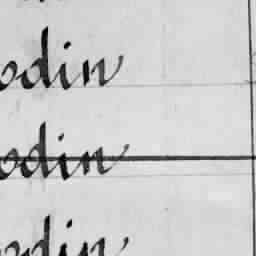 odin
odin
odin